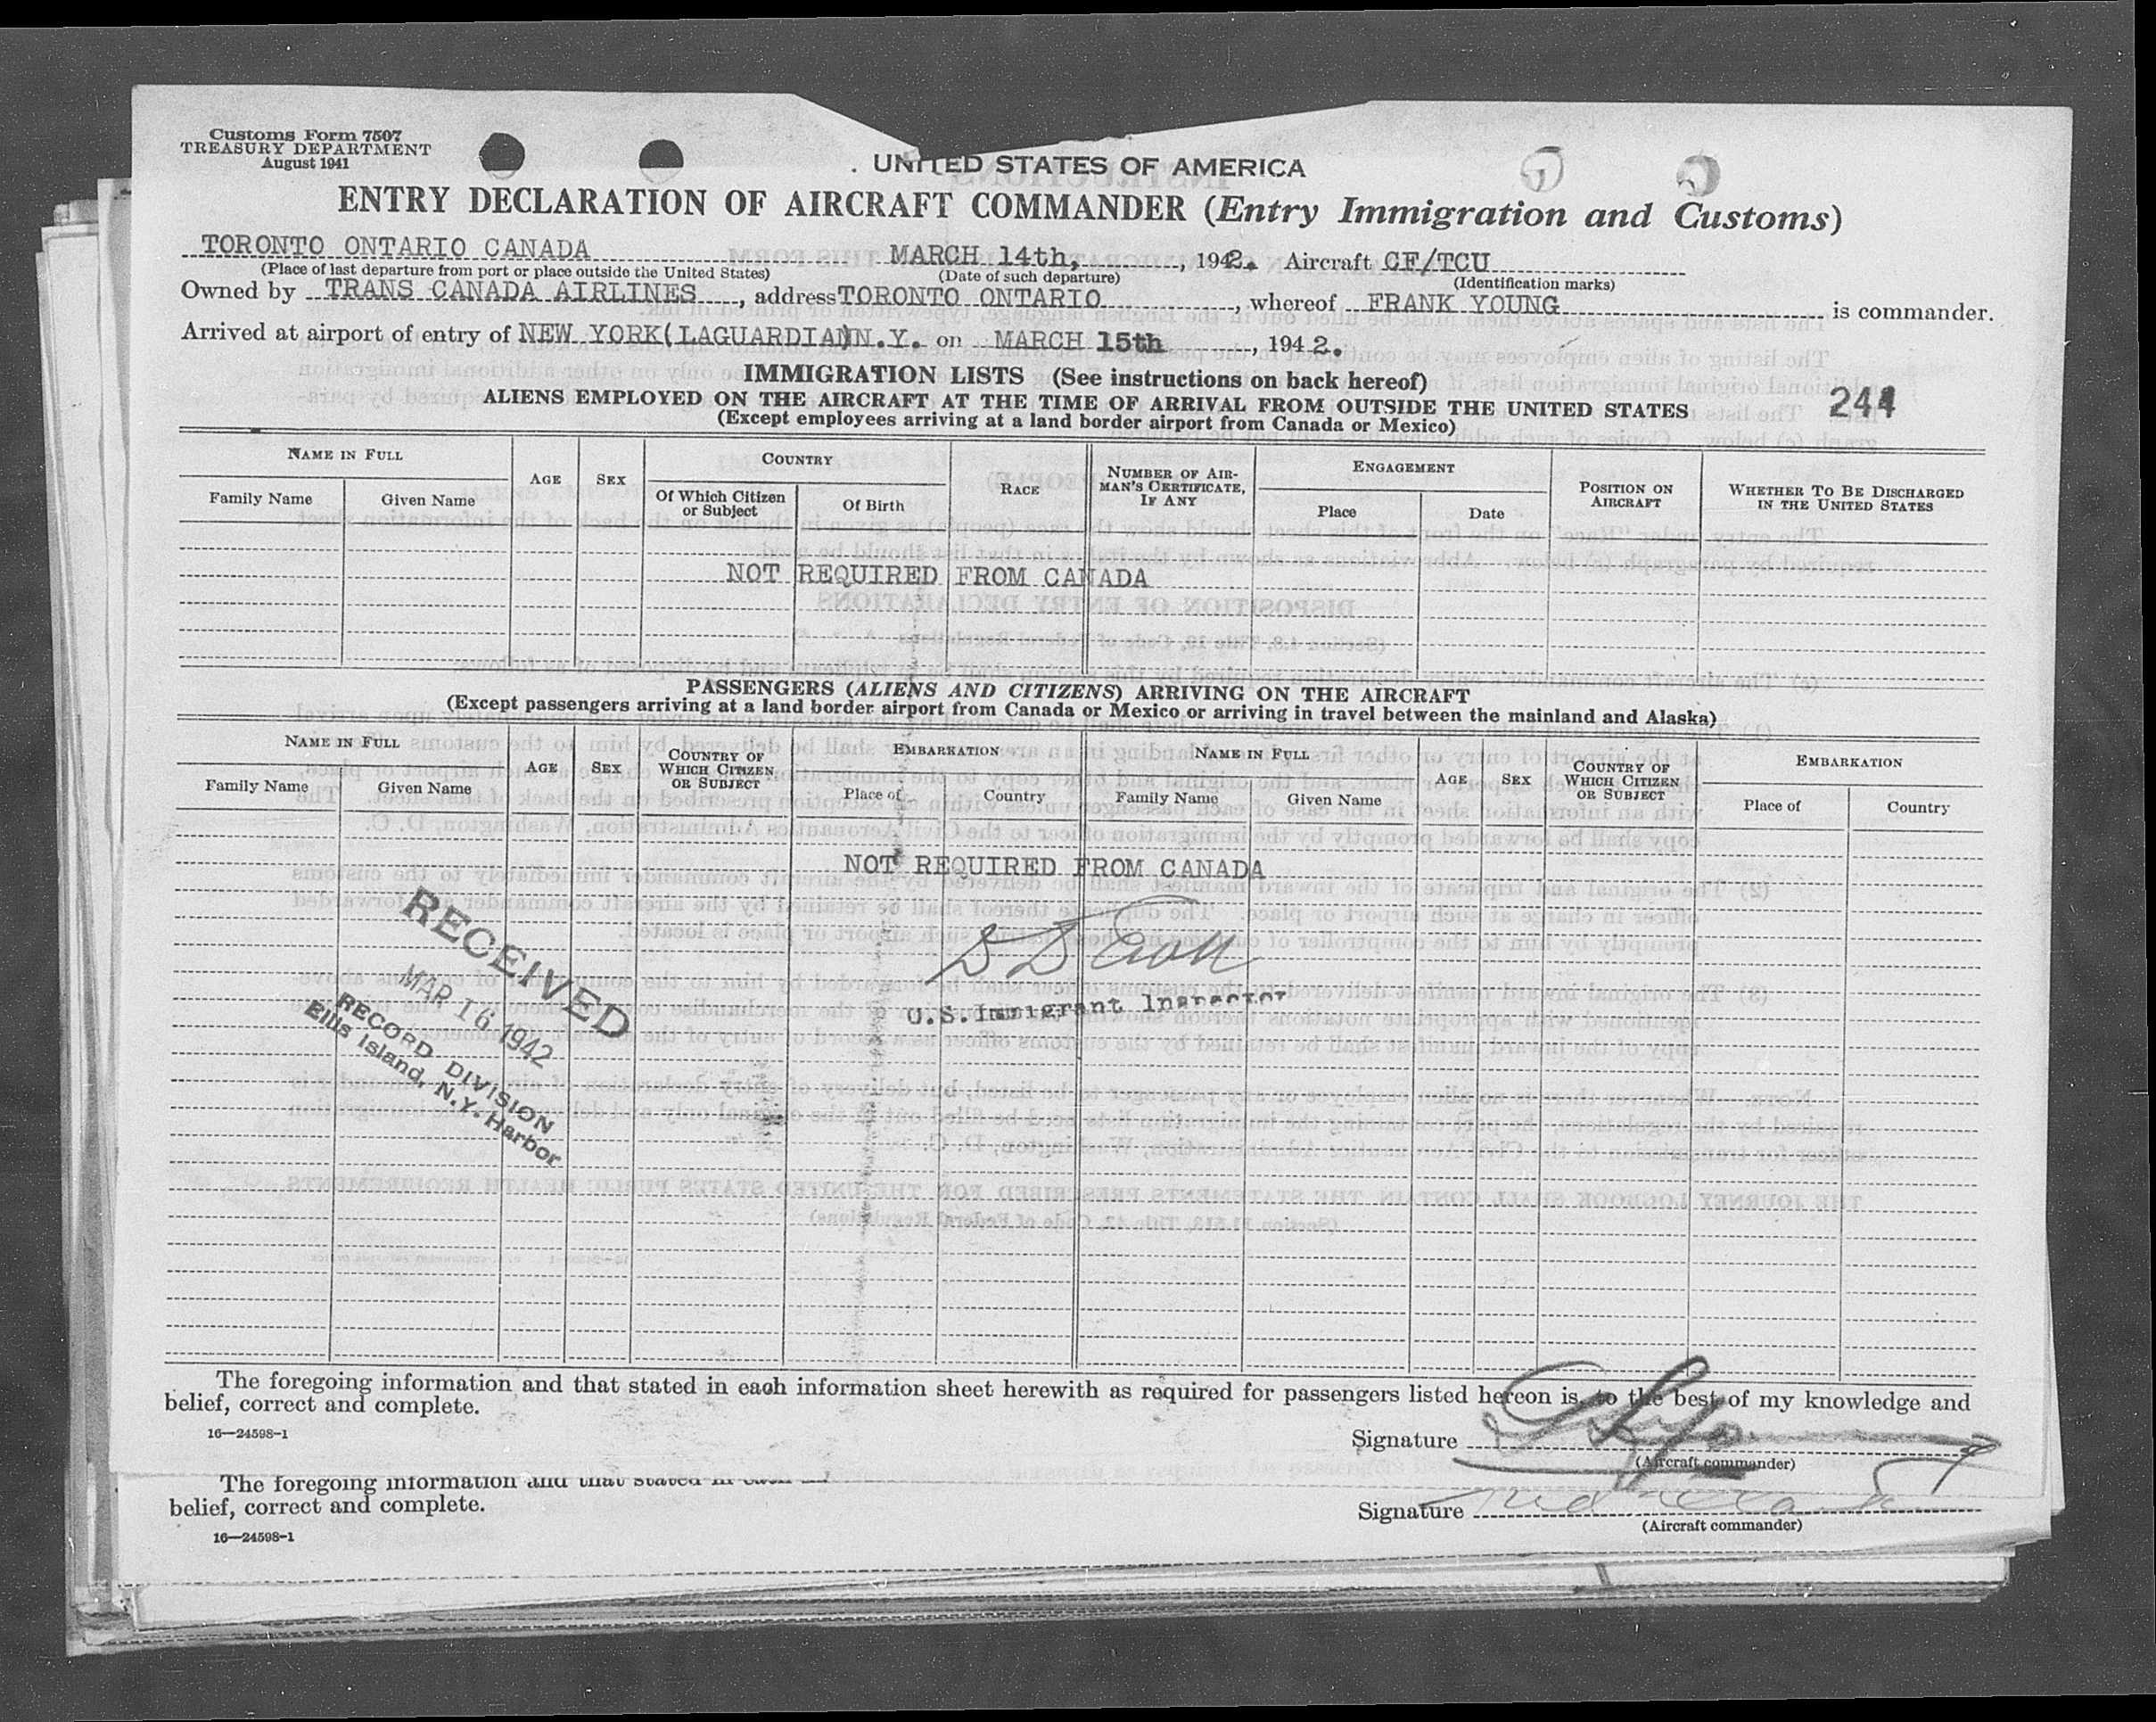 Customs Form 7507
TREASURY DEPARTMENT
August 1941
UNITED STATES OF AMERICA
ENTRY DECLARATION OF AIRCRAFT COMMANDER (Entry Immigration and Customs)
TORONTO ONTARIO CANADA MARCH 14th, , 1942. Aircraft CF/TCU
(Place of last departure from port or place outside the United States) (Date of such departure) (Identification marks)
Owned by TRANS CANADA AIRLINES , address TORONTO ONTARIO , whereof FRANK YOUNG is commander.
Arrived at airport of entry of NEW YORK(LAGUARDIA)N.Y. on MARCH 15th , 1942.
IMMIGRATION LISTS (See instructions on back hereof)
244
ALIENS EMPLOYED ON THE AIRCRAFT AT THE TIME OF ARRIVAL FROM OUTSIDE THE UNITED STATES
(Except employees arriving at a land border airport from Canada or Mexico)
NAME IN FULL
Family Name Given Name
AGE
SEX
COUNTRY
Of Which Citizen or Subject
Of Birth
RACE
NUMBER OF AIRMAN'S CERTIFICATE, IF ANY
ENGAGEMENT
Place Date
POSITION ON AIRCRAFT
WHETHER TO BE DISCHARGED IN THE UNITED STATES
NOT REQUIRED FROM CANADA
PASSENGERS (ALIENS AND CITIZENS) ARRIVING ON THE AIRCRAFT
(Except passengers arriving at a land border airport from Canada or Mexico or arriving in travel between the mainland and Alaska)
NAME IN FULL
Family Name Given Name
AGE
SEX
COUNTRY OF WHICH CITIZEN OR SUBJECT
EMBARKATION
Place of Country
NAME IN FULL
Family Name Given Name
AGE
SEX
COUNTRY OF WHICH CITIZEN OR SUBJECT
EMBARKATION
Place of Country
NOT REQUIRED FROM CANADA
U.S.Immigrant Inspector
RECEIVED
MAR 16 1942
RECORD DIVISION
Ellis Island, N.Y. Harbor
The foregoing information and that stated in each information sheet herewith as required for passengers listed hereon is, to the best of my knowledge and
belief, correct and complete.
16—24598-1
Signature
(Aircraft commander)
The foregoing information and that stated in each
belief, correct and complete.
16—24598-1
Signature
(Aircraft commander)